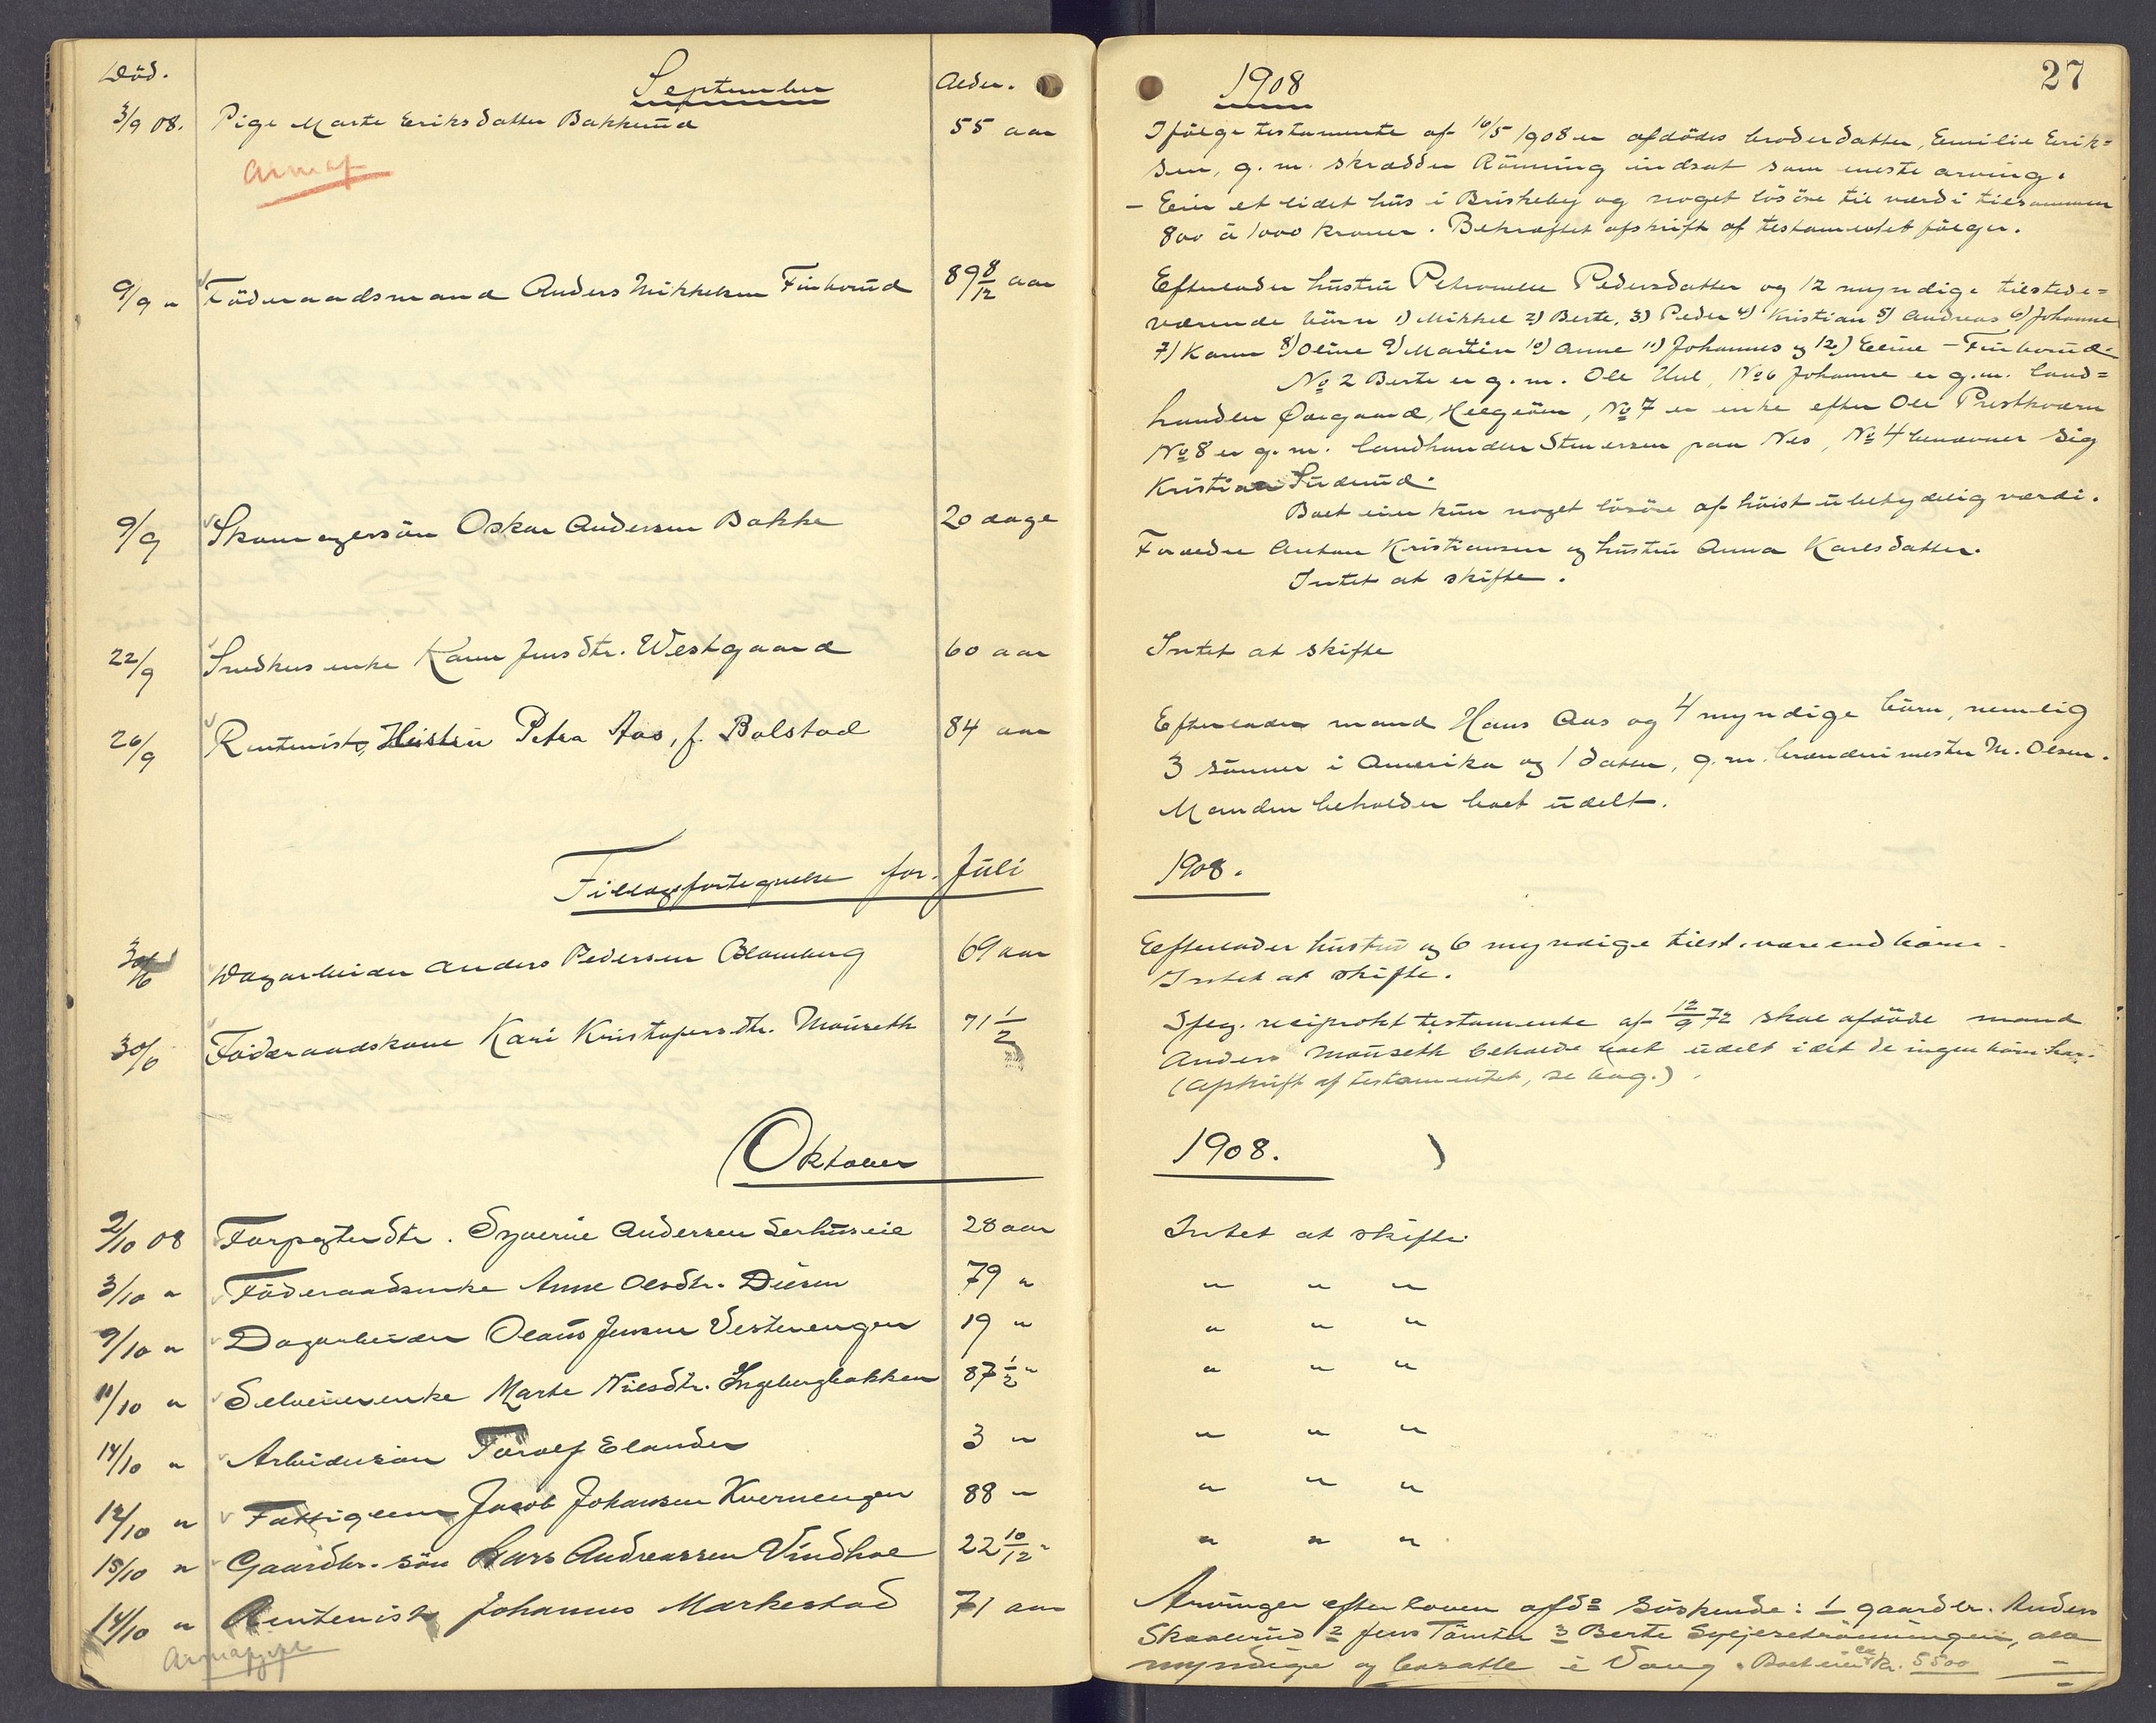 Död.
September
Alder.
3/9 08.
Pige Marte Eriksdatter Bakkerud
55 aar
9/9 "
Föderaadsmand Anders Mikkelsen Finborud
89 8/12 aar
9/9
Skomagersön Oskar Andersen Bakke
20 dage
22/9
Snedkerenke Karen Jensdtr. Westgaard
60 aar
26/9
Rentenist, Hustru Petra Aas, f. Bolstad
84 aar
Tillægsfortegnelse for Juli
30/6
Dagarbeider Anders Pedersen Blomberg
69 aar
30/6
Föderaadskone Kari Kristofersdtr. Mauseth
71 1/2
Oktober
2/10 08
Forpagterdtr. Andersen
28 aar
3/10 "
Föderaadsenke Anne Olsdtr. Disen
79 "
9/10 "
Dagarbeider Olaus Jensen Vestenengen
19 "
11/10 "
Selveierenke Marte Nilsdtr. Ingebergbakken
87 1/2 "
14/10 "
Arbeidersön Torolf Elander
3 "
12/10 "
Fattiglem Jacob Johansen Kvernengen
88 "
15/10 "
Gaardbr. sön Lars Andreassen Vindhol
22 10/12 "
14/10 "
Rentenist Johannes Markestad
71 aar
27
1908
Ifölge testamente af 16/5 1908 er afdödes broderdatter, Emilie Erik=
sen, g. m. skrædder Rönning indsat som eneste arving.
- Eier et lidet hus i Briskeby og noget lösöre til værdi tilsammen
800 à 1000 kroner. Bekræftet afskrift af testamentet fölger.
Efterlader hustru Petronelle Pedersdatter og 12 myndige tilstede=
værende börn 1) Mikkel 2) Berte, 3) Peder 4) Kristian 5) Andreas 6) Johanne
7) Karen 8) Oline 9) Martin 10) Anne 11) Johannes og 12) Eline - Finborud.
No 2 Berte er g. m. Ole Hul, No 6 Johanne er g. m. land=
handler Övergaard, Helgöen, No 7 er enke efter Ole Prestkværn
No 8 er g. m. landhandler Stenersen paa Nes, No 4 benævner sig
Kristian Suderud.
Boet eier kun noget lösöre af höist ubetydelig værdi.
Forældre Anton Kristiansen og hustru Anna Karlsdatter.
Intet at skifte.
Intet at skifte
Efterlader mand Hans Aas og 4 myndige börn, nemlig
3 sönner i Amerika og 1 datter, g. m. brænderimester M. Olsen.
Manden beholder boet udelt.
1908.
Efterlader hustru og 6 myndige tilst. værend börn.
Intet at skifte.
Ifölg. reciprokt testamente af 12/9 72 skal afdöde mand
Anders Mauseth beholde boet udelt idet de ingen börn har.
(Afskrift af testamentet, se bag.)
1908.
Intet at skifte
" " "
" " "
" " "
" " "
" " "
" " "
Arvinger efter loven afds söskende: 1 gaardbr. Anders
Skaalerud 2 Jens Tömta 3 Berte, alle
myndige og bosatte i Vang. Boet eier ca kr. 5500